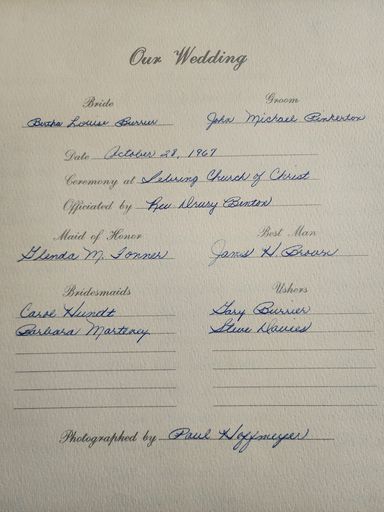 Our Wedding
Bride Groom
Bertha Louise Burrier John Michael Pinkerton
Date October 28, 1967
Ceremony at Sebring Church of Christ
Officiated by Rev Drury Benton
Maid of Honor Best Man
Glenda M. Tonner James H. Brown
Bridesmaids Ushers
Carol Hundt Gary Burrier
Barbara Marteney Steve Davies
Photographed by Paul Hoffmeyer